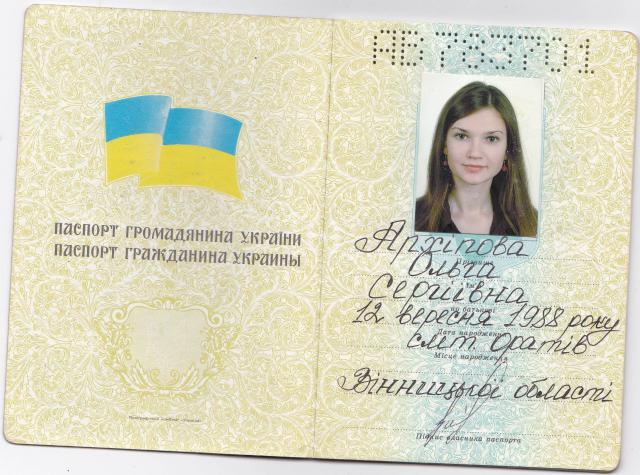 ПАСПОРТ ГРОМАДЯНИНА УКРАЇНИ
ПАСПОРТ ГРАЖДАНИНА УКРАИНЫ
АВ 783701
Архіпова
Прізвище
Ольга
Ім'я
Сергіївна
по батькові
12 вересня 1988 року
Дата народження
смт. Оратів
Місце народження
Вінницької області
Підпис власника паспорта